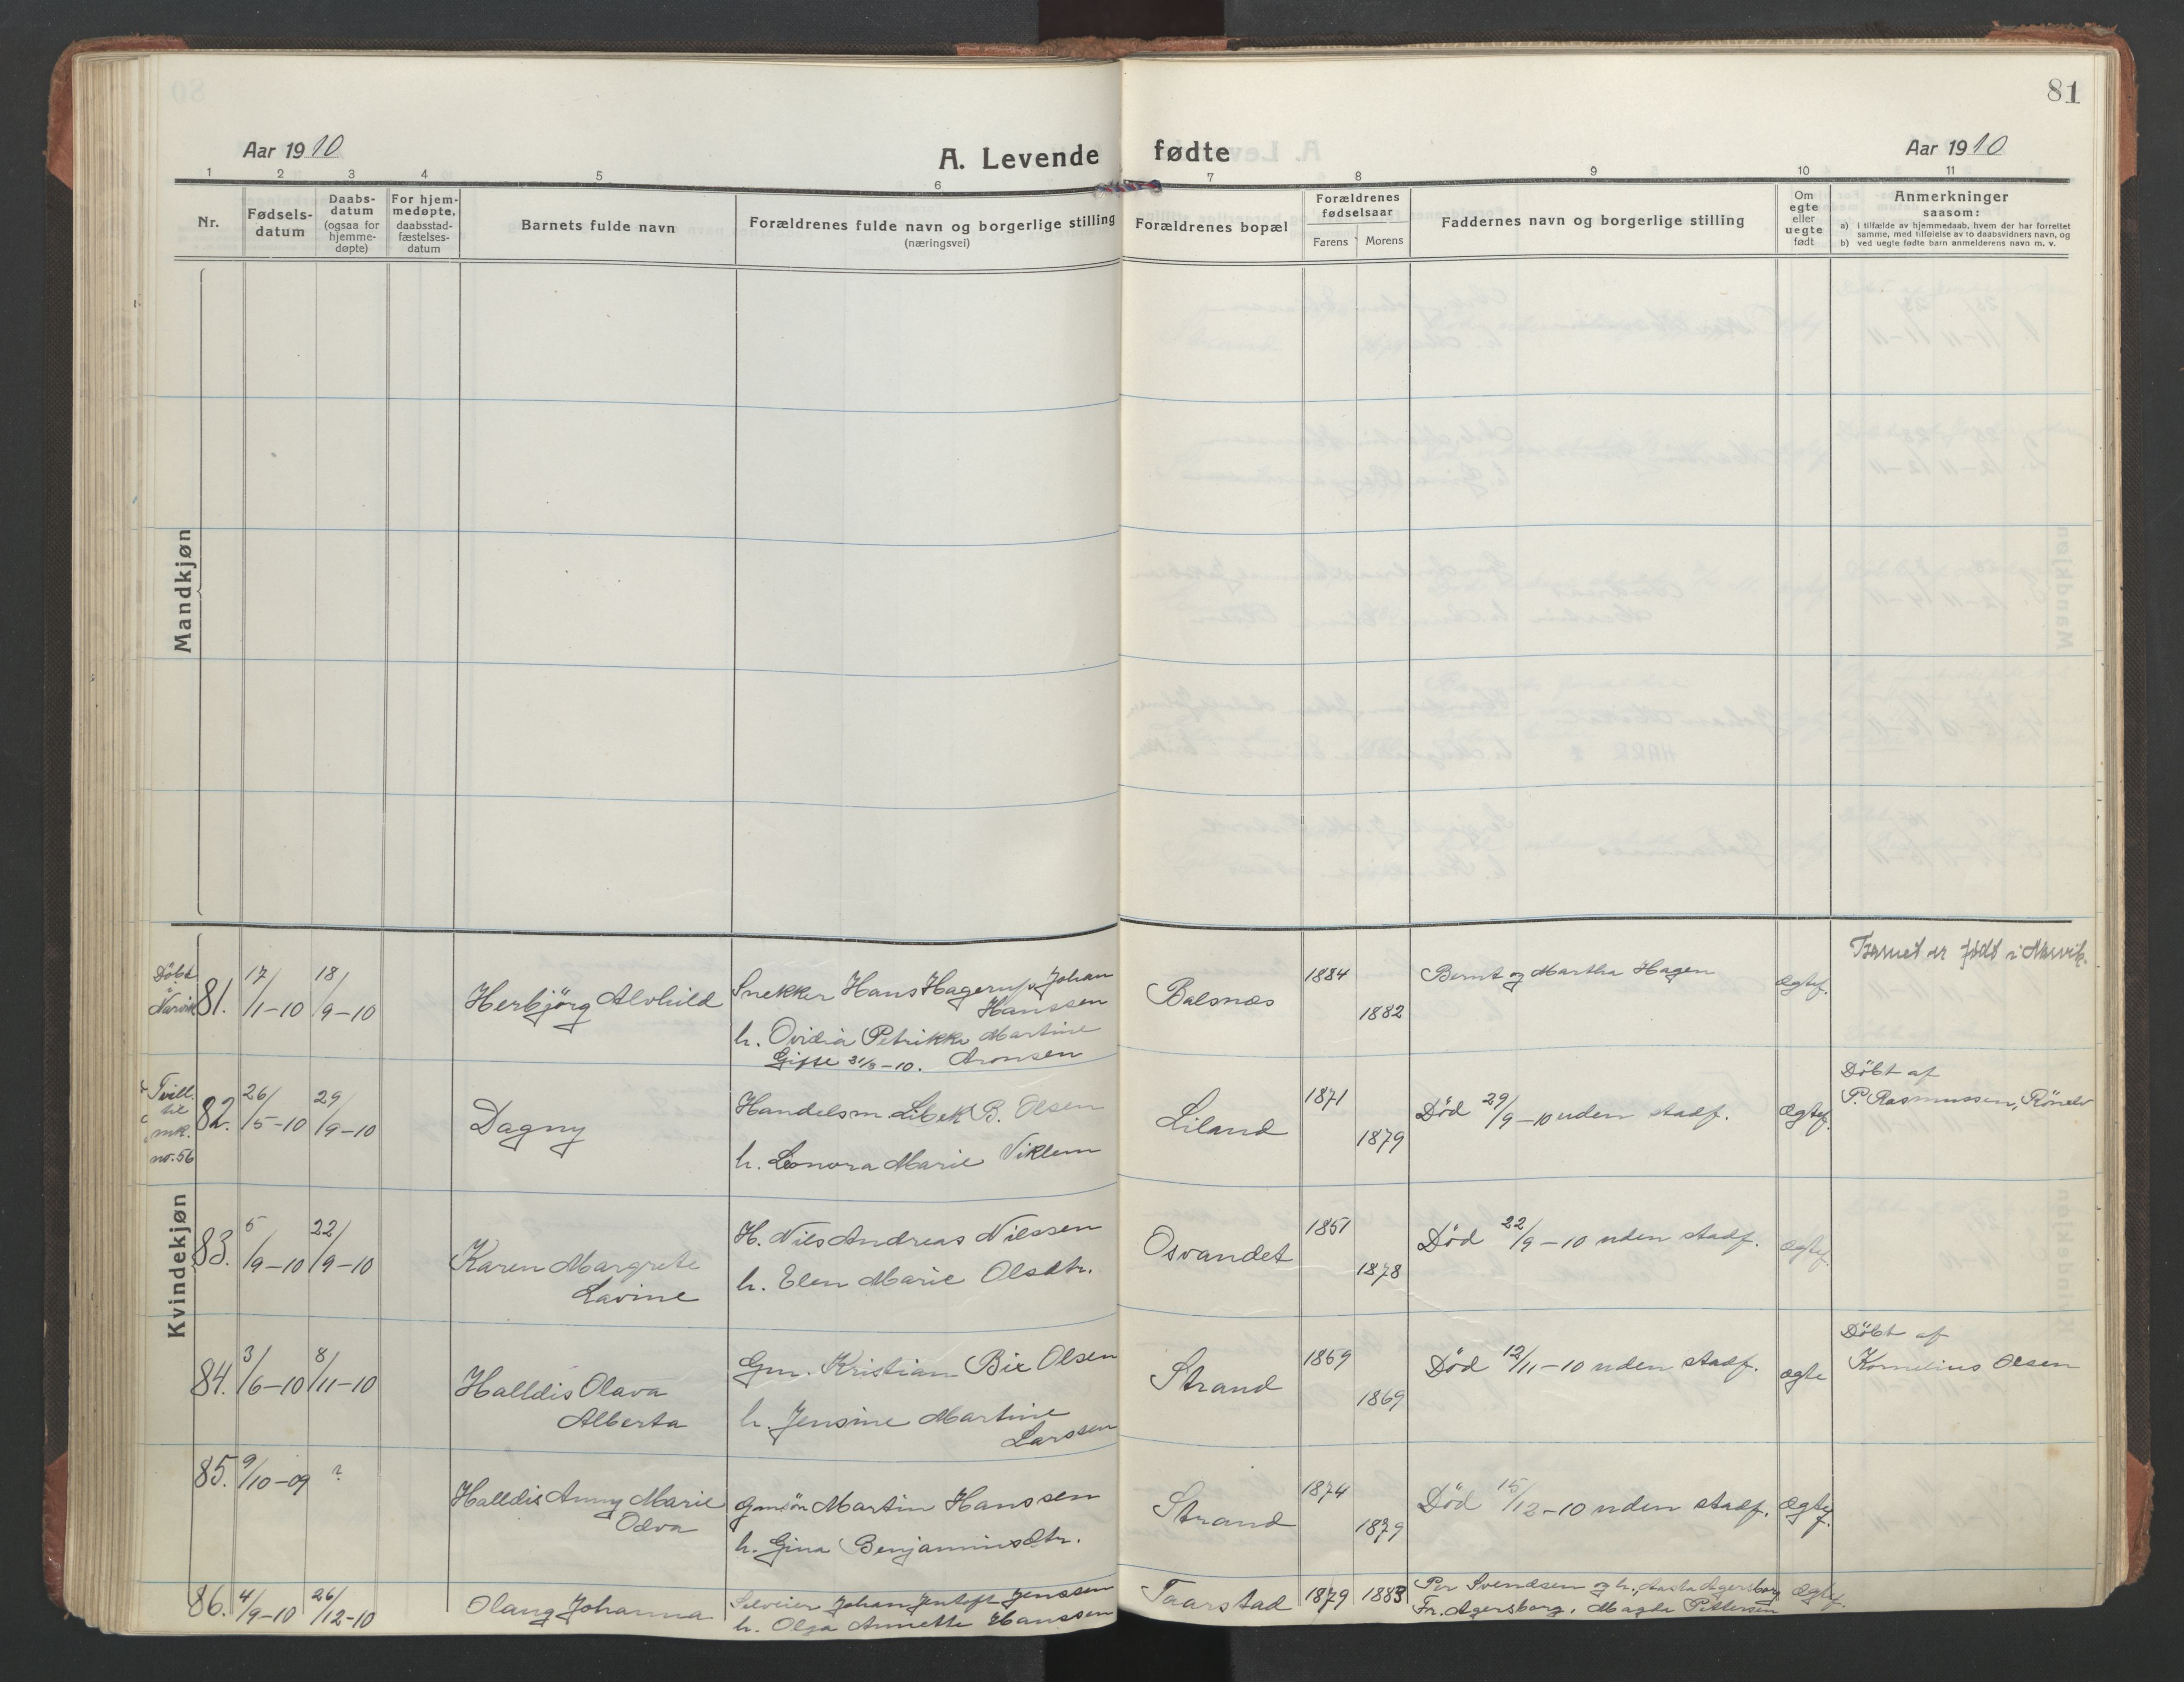 81
Aar 1910
A. Levende fødte
Aar 1910
1 2 3 4 5 6 7 8 9 10 11
Nr.
Fødsels-
datum
Daabs-
datum
(ogsaa for
hjemme-
døpte)
For hjem-
medøpte,
daabsstad-
fæstelses-
datum
Barnets fulde navn
Forældrenes fulde navn og borgerlige stilling
(næringsvei)
Forældrenes bopæl
Forældrenes
fødselsaar
Farens Morens
Faddernes navn og borgerlige stilling
Om
egte
eller
uegte
født
Anmerkninger
saasom:
a) i tilfælde av hjemmedaab, hvem der har forrettet
samme, med tilføielse av to daabsvidners navn, og
b) ved uegte fødte barn anmelderens navn m. v.
Mandkjøn
Kvindekjøn
Döbt
i
Narvik
81.
17/1-10
18/9-10
Herbjörg Alvhild
Snekker Hans Hagerup Johan
Hanssen
h. Ovidia Petrikke Martine
Gifte 31/3-10. Aronsen
Balsnæs
1884
1882
Bernt og Martha Hagen
ægtef.
Barnet er født i Narvik.
Tvill.
til
mk.
no. 56
82.
26/5-10
29/9-10
Dagny
Handelsm. Libek B. Olsen
h. Leonora Marie Viklem
Liland
1871
1879
Död 29/9-10 uden stadf.
ægtef.
Döbt af
P. Rasmussen, Rönelv
83.
5/9-10
22/9-10
Karen Margrete
Lavine
H. Nils Andreas Nilssen
h. Elen Marie Olsdtr.
Osvandet
1851
1878
Död 22/9-10 uden stadf.
ægtef.
84.
3/6-10
8/11-10
Halldis Olava
Alberta
Gm. Kristian Bix Olsen
h. Jensine Martine
Larssen
Strand
1869
1869
Död 12/11-10 uden stadf.
ægte
Döbt af
Kornelius Olsen
85.
9/10-09
?
Halldis Anny Marie
Odva
Gmsön Martin Hanssen
h. Gina Benjaminsdtr.
Strand
1874
1879
Död 15/12-10 uden stadf.
ægtef.
86.
4/9-10
26/12-10
Olaug Johanna
Selveier Johan Jentoft Jenssen
h. Olga Annette Hanssen
Taarstad
1879
1883
Per Svendsen og h., Aasta Agersborg
Fr. Agersborg, Magda Pettersen
ægtef.